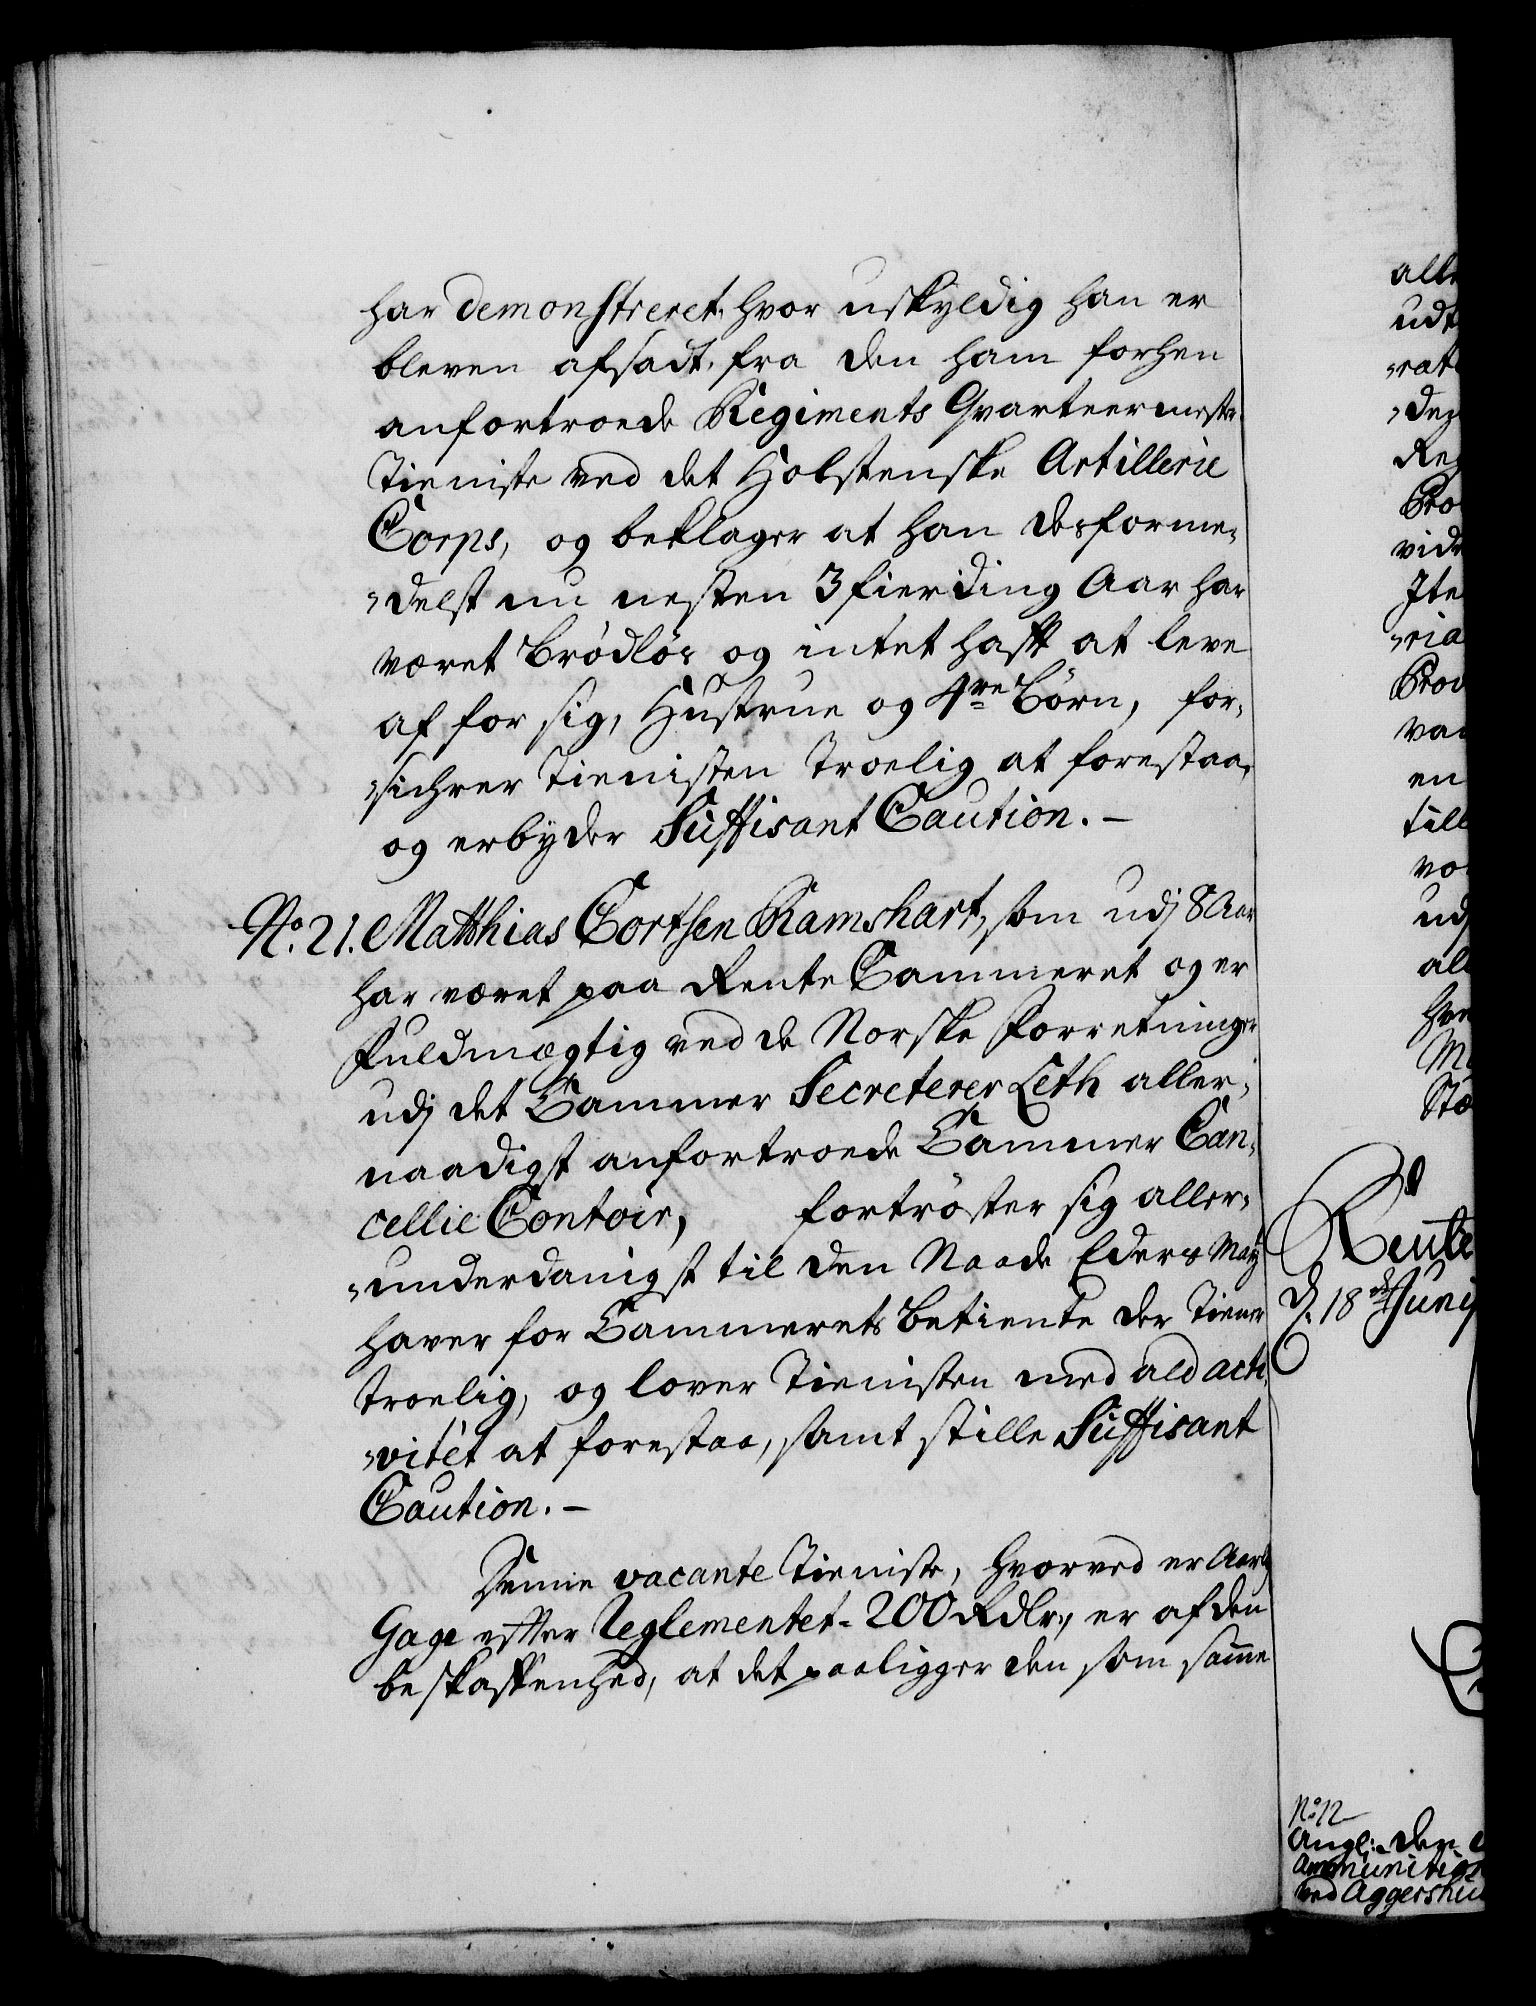 har demonstreret, hvor uskyldig han er
bleven afsadt, fra den ham forhen
anfortroede Regiments Qvarteermester
Tieniste ved det Holstenske Artillerie
Corps, og beklager at han desforme,
,,delst nu nesten 3 fierding Aar har
været Brødløs og intet haft at leve
af for sig, Hustrue og 4re Børn, for,
,,sichrer Tienisten Troelig at forestaa,
og erbyder Suffisant Caution. -
No. 21. Matthias Cortsen Ramshart, som udj 8 Aar
har været paa Rente Cammeret og er
Fuldmægtig ved de Norske Forretninger
udj det Cammer Secreterer Leth aller,
naadigst anfortroede Cammer Can,
cellie Contoir, fortrøster sig aller,
,,underdanigst til den Naade Eders May
haver for Cammerets Betiente der Tiener
troelig, og lover Tienisten med ald acti,
,,vitét at forestaa, samt stille Suffisant
Caution. -
Denne vacante Tieniste, hvorved er Aarl.
Gage efter Reglementet - 200 Rdlr., er af den
beskaffenhed, at det paaligger den som samme
alle
udt
,,rat
,,den
Reg
Pro
vide
Ite
,,ria
Prov
van
en
till
vo
udj
all
hve
M
Stæ
Rente
D. 18de Junij
No 12
Angl: den
Ammunition
ved Aggershu